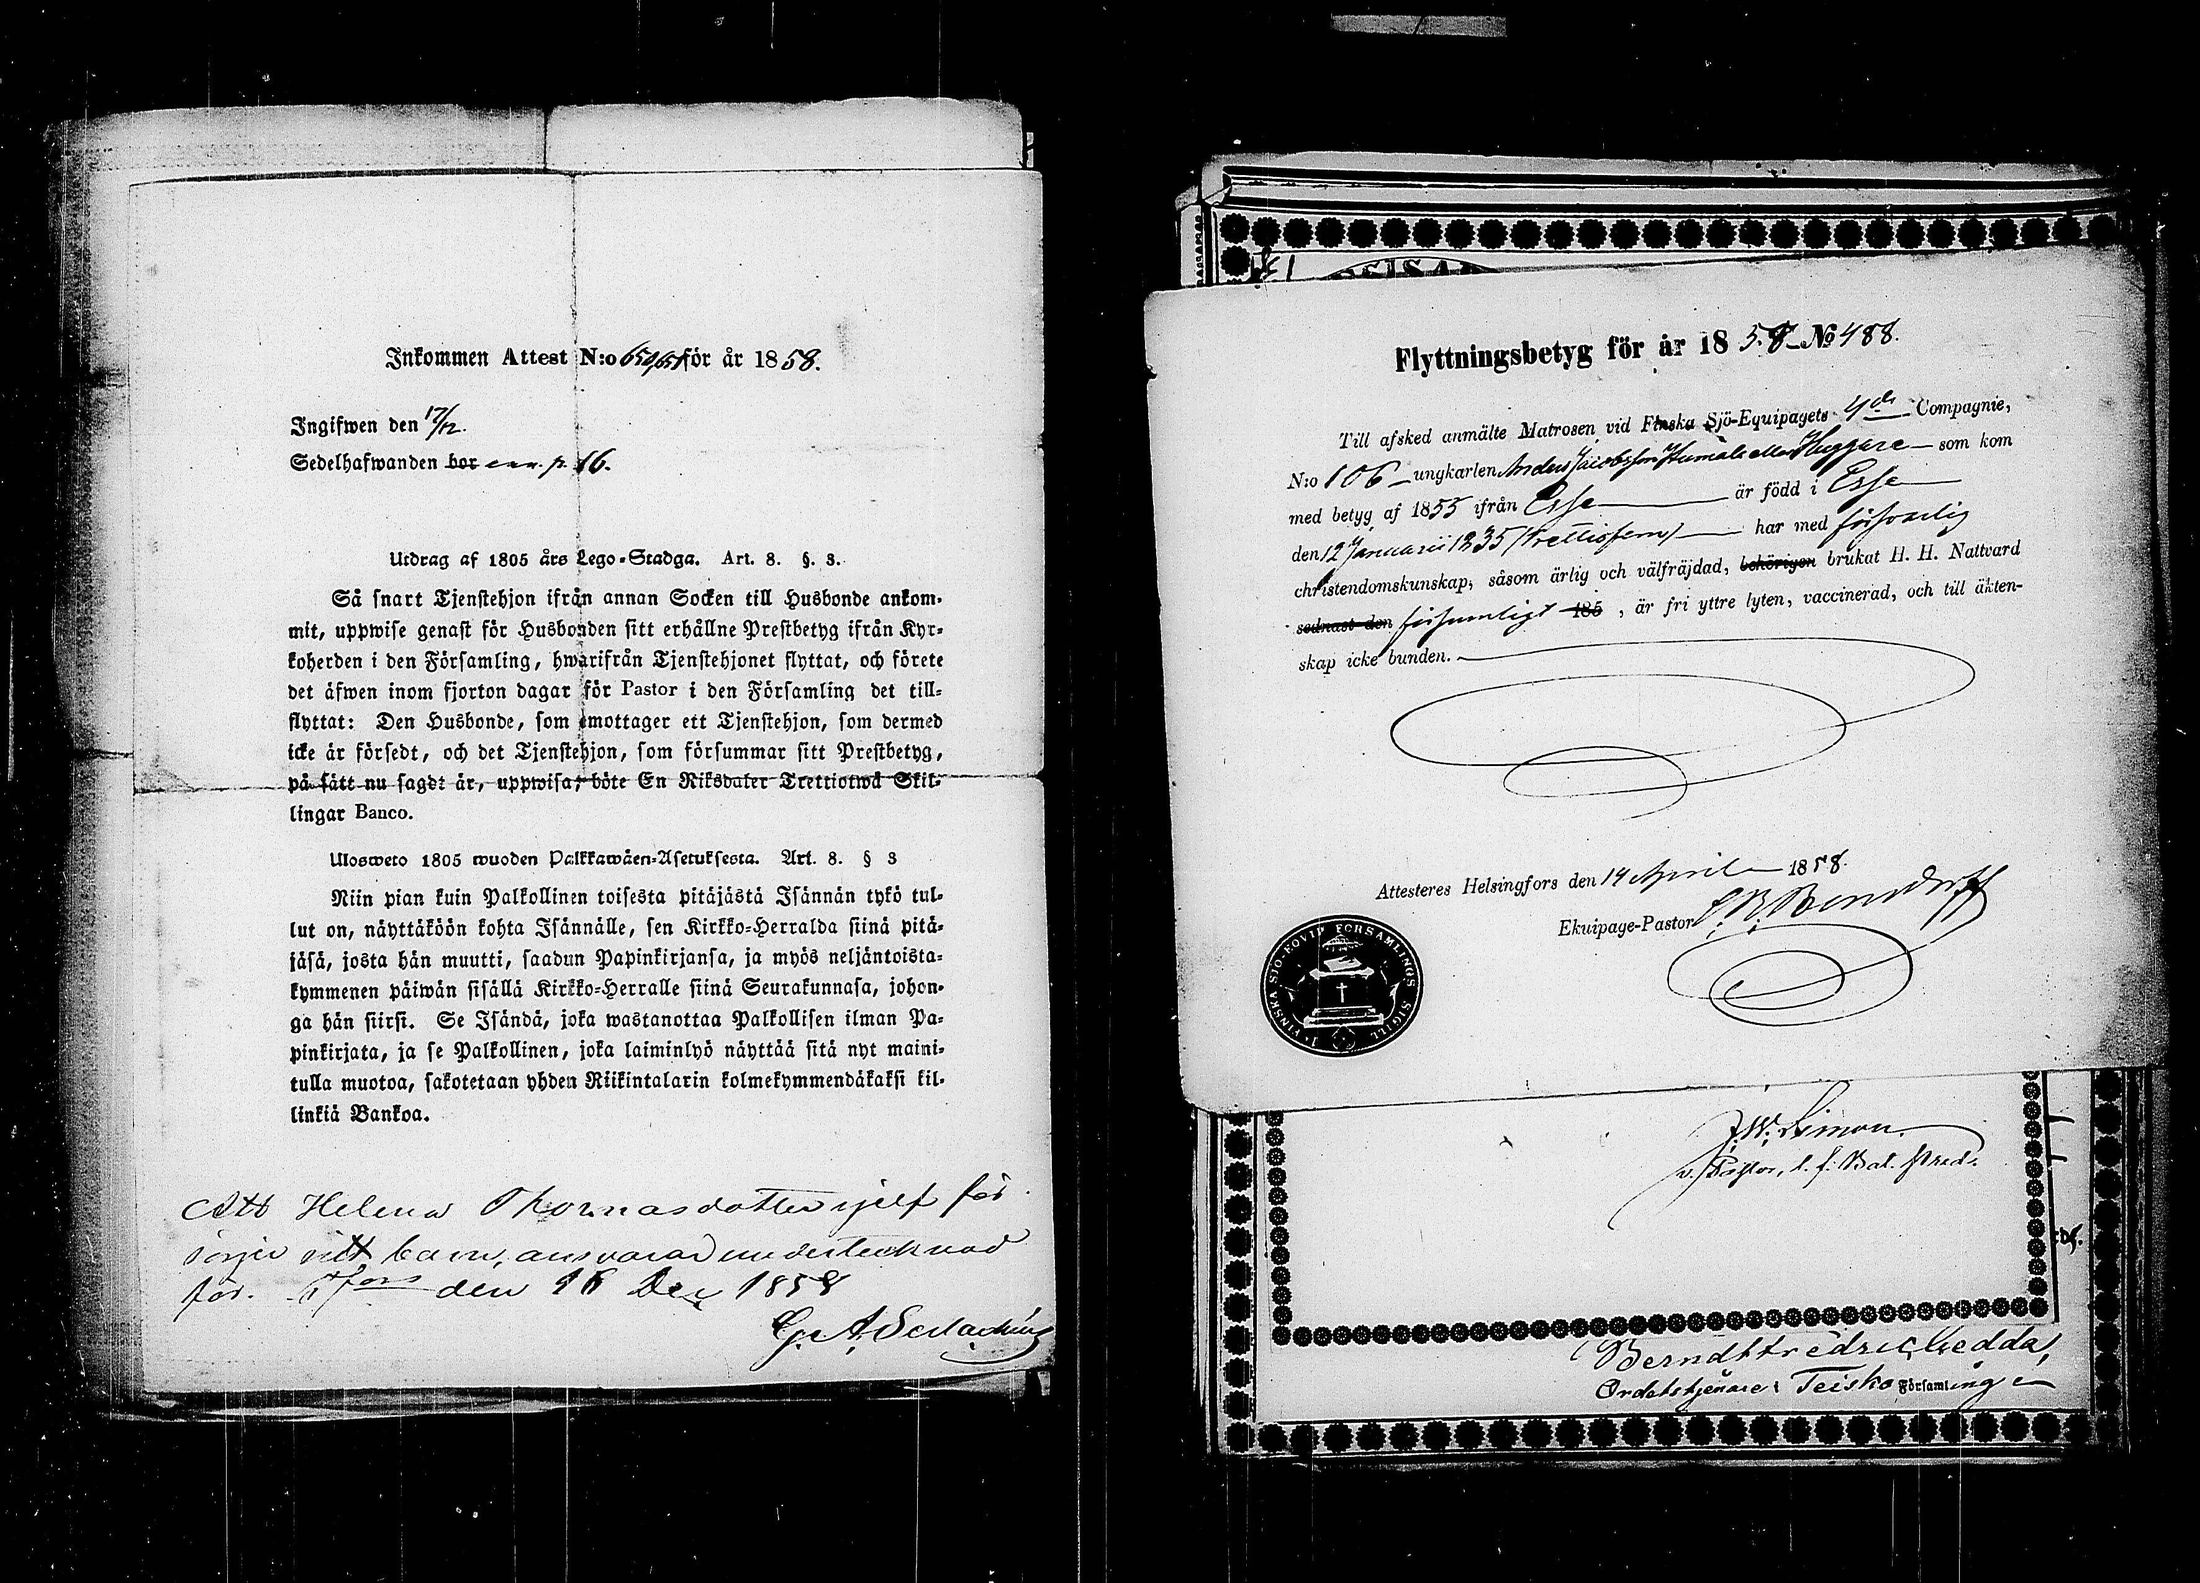 Inkommen Attest N:o 650/651 för år 1858.
Ingifwen den 17/12.
Sedelhafwanden bor p. 16.
Utdrag af 1805 års Lego-Stadga. Art. 8. §. 3.
Så snart Tjenstehjon ifrån annan Socken till Husbonde ankom-
mit, uppwise genast för Husbonden sitt erhållne Prestbetyg ifrån Kyr-
koherden i den Församling, hwarifrån Tjenstehjonet flyttat, och förete
det äfwen inom fjorton dagar för Pastor i den Församling det till-
flyttat: Den Husbonde, som emottager ett Tjenstehjon, som dermed
icke är försedt, och det Tjenstehjon, som försummar sitt Prestbetyg,
på sätt nu sagdt är, uppwisa, böte En Riksdaler Trettiotwå Skil-
lingar Banco.
Ulosweto 1805 wuoden Palkkawäen-Asetuksesta. Art. 8. § 3
Niin pian kuin Palkollinen toisesta pitäjästä Isännän tykö tul-
lut on, näyttäköön kohta Isännälle, sen Kirkko-Herralda siinä pitä-
jäsä, josta hän muutti, saadun Papinkirjansa, ja myös neljäntoista-
kymmenen päiwän sisällä Kirkko-Herralle siinä Seurakunnasa, johon-
ga hän siirsi. Se Isändä, joka wastanottaa Palkollisen ilman Pa-
pinkirjata, ja se Palkollinen, joka laiminlyö näyttää sitä nyt maini-
tulla muotoa, sakotetaan yhden Riikintalarin kolmekymmendäkaksi kil-
linkiä Bankoa.
Att Helena Thomasdotter sjelf för
sörjer sitt barn, ansvarar undertecknad
för. H:fors den 16 Dec 1858
G. A. Serlachius
Flyttningsbetyg för år 1858 No 488.
Till afsked anmälte Matrosen vid Finska Sjö-Equipagets 4de Compagnie,
N:o 106 ungkarlen Anders Jacobsson Humala eller Huggare som kom
med betyg af 1855 ifrån Esse är född i Esse
den 12 Januarii 1835 (Trettiofem) har med försvarlig
christendomskunskap, såsom ärlig och välfräjdad, behörigen brukat H. H. Nattvard
sednast den försumligt 185 , är fri yttre lyten, vaccinerad, och till äkten-
skap icke bunden.
Attesteres Helsingfors den 14 April 1858.
Ekuipage-Pastor Bonsdorff
FINSKA SJÖ-EQVIP. FÖRSAMLINGS SIGILL
J. W. Simon.
v. Pastor, t. f. Bat. Pred.
Berndt Fredric Gedda,
Ordetstjenare i Teisko Församlingen